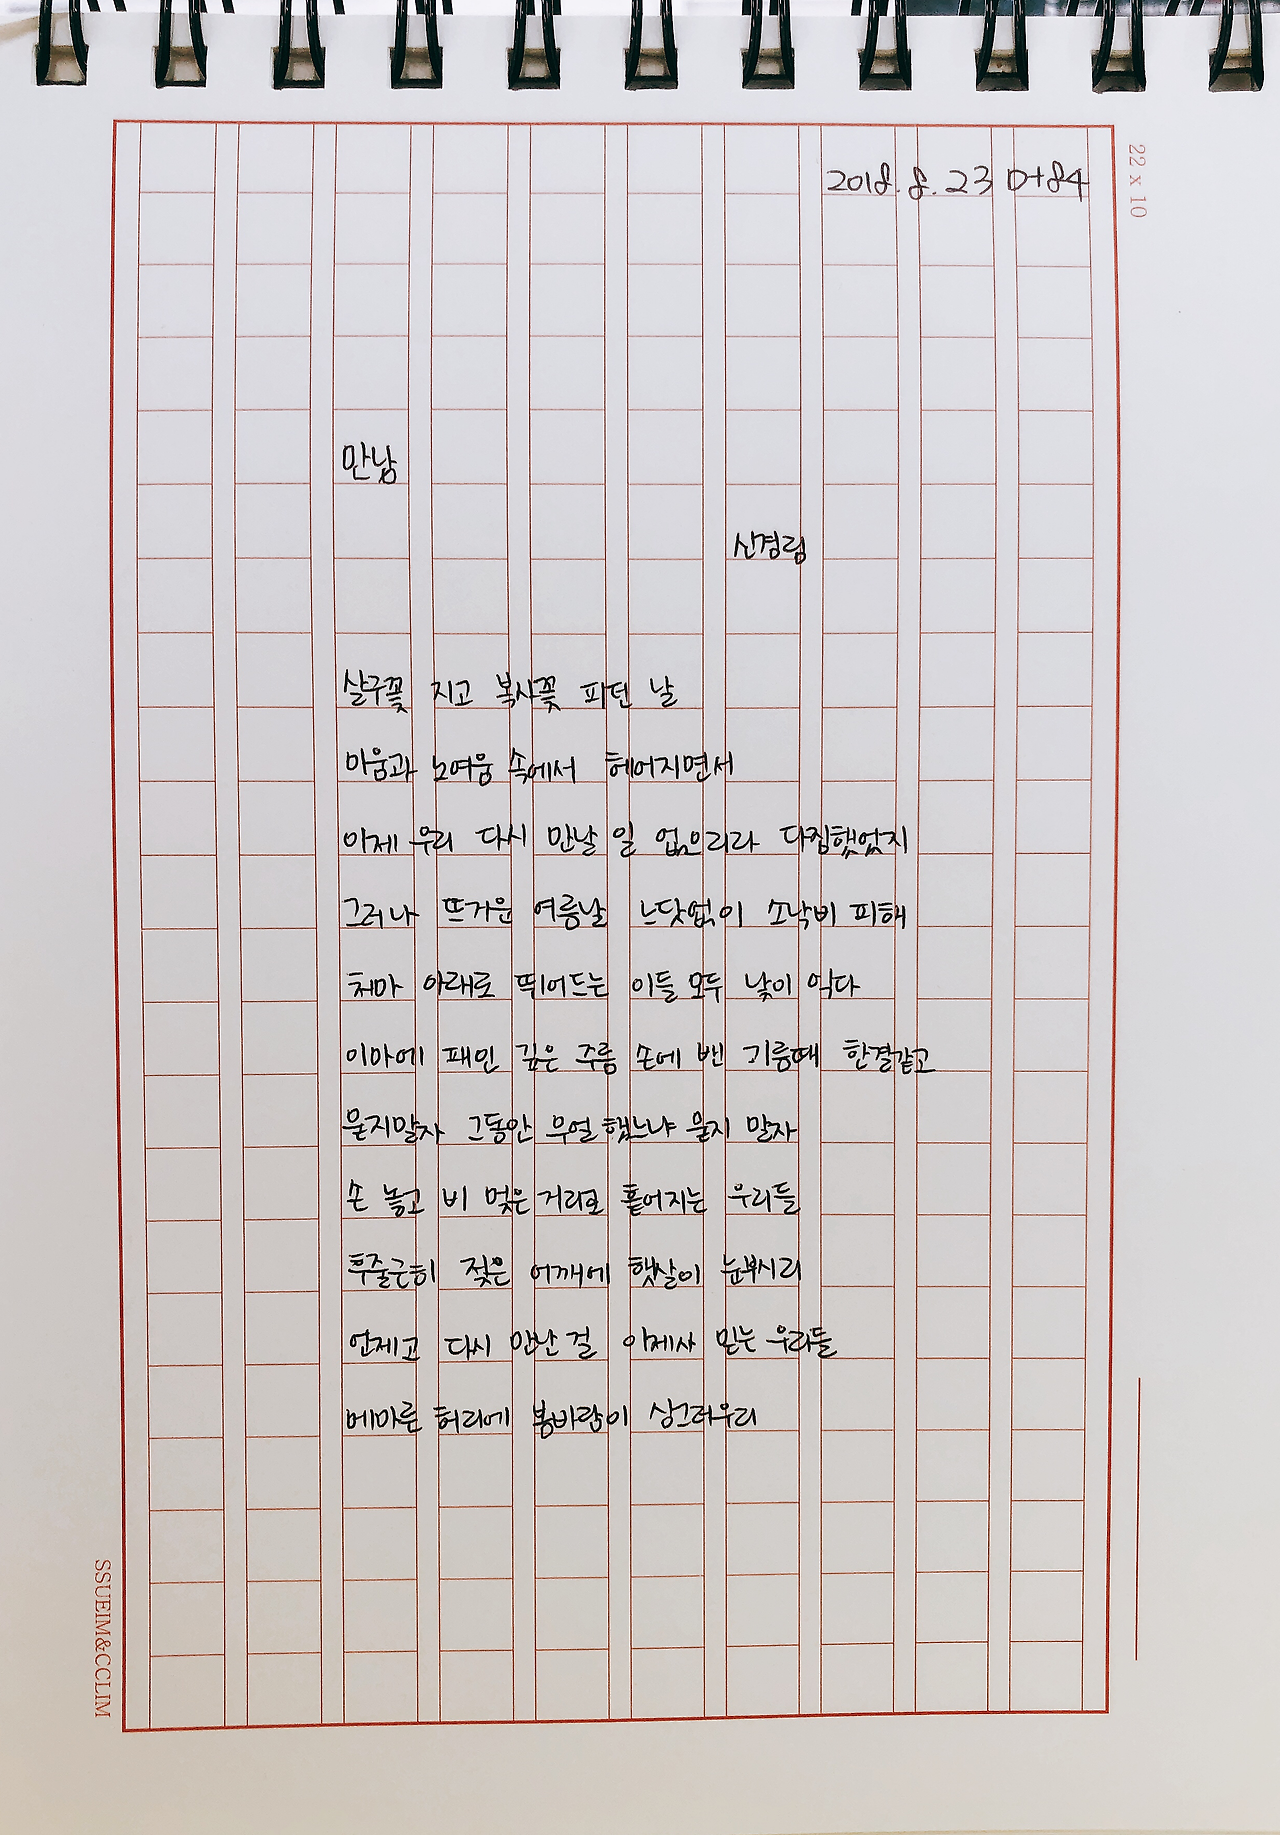 22 x 10
2018. 8. 23 D+84
만남
신경림
살구꽃 지고 복사꽃 피던 날
미움과 노여움 속에서 헤어지면서
이제 우리 다시 만날 일 없으리라 다짐했었지
그러나 뜨거운 여름날 느닷없이 소낙비 피해
처마 아래로 뛰어드는 이들 모두 낯이 익다
이마에 패인 깊은 주름 손에 밴 기름때 한결같고
묻지말자 그동안 무얼 했느냐 묻지 말자
손 놓고 비 멎은 거리로 흩어지는 우리들
후줄근히 젖은 어깨에 햇살이 눈부시리
언제고 다시 만난 걸 이제사 믿는 우리들
메마른 허리에 봄바람이 싱그러우리
SSUEIM&CCLIM